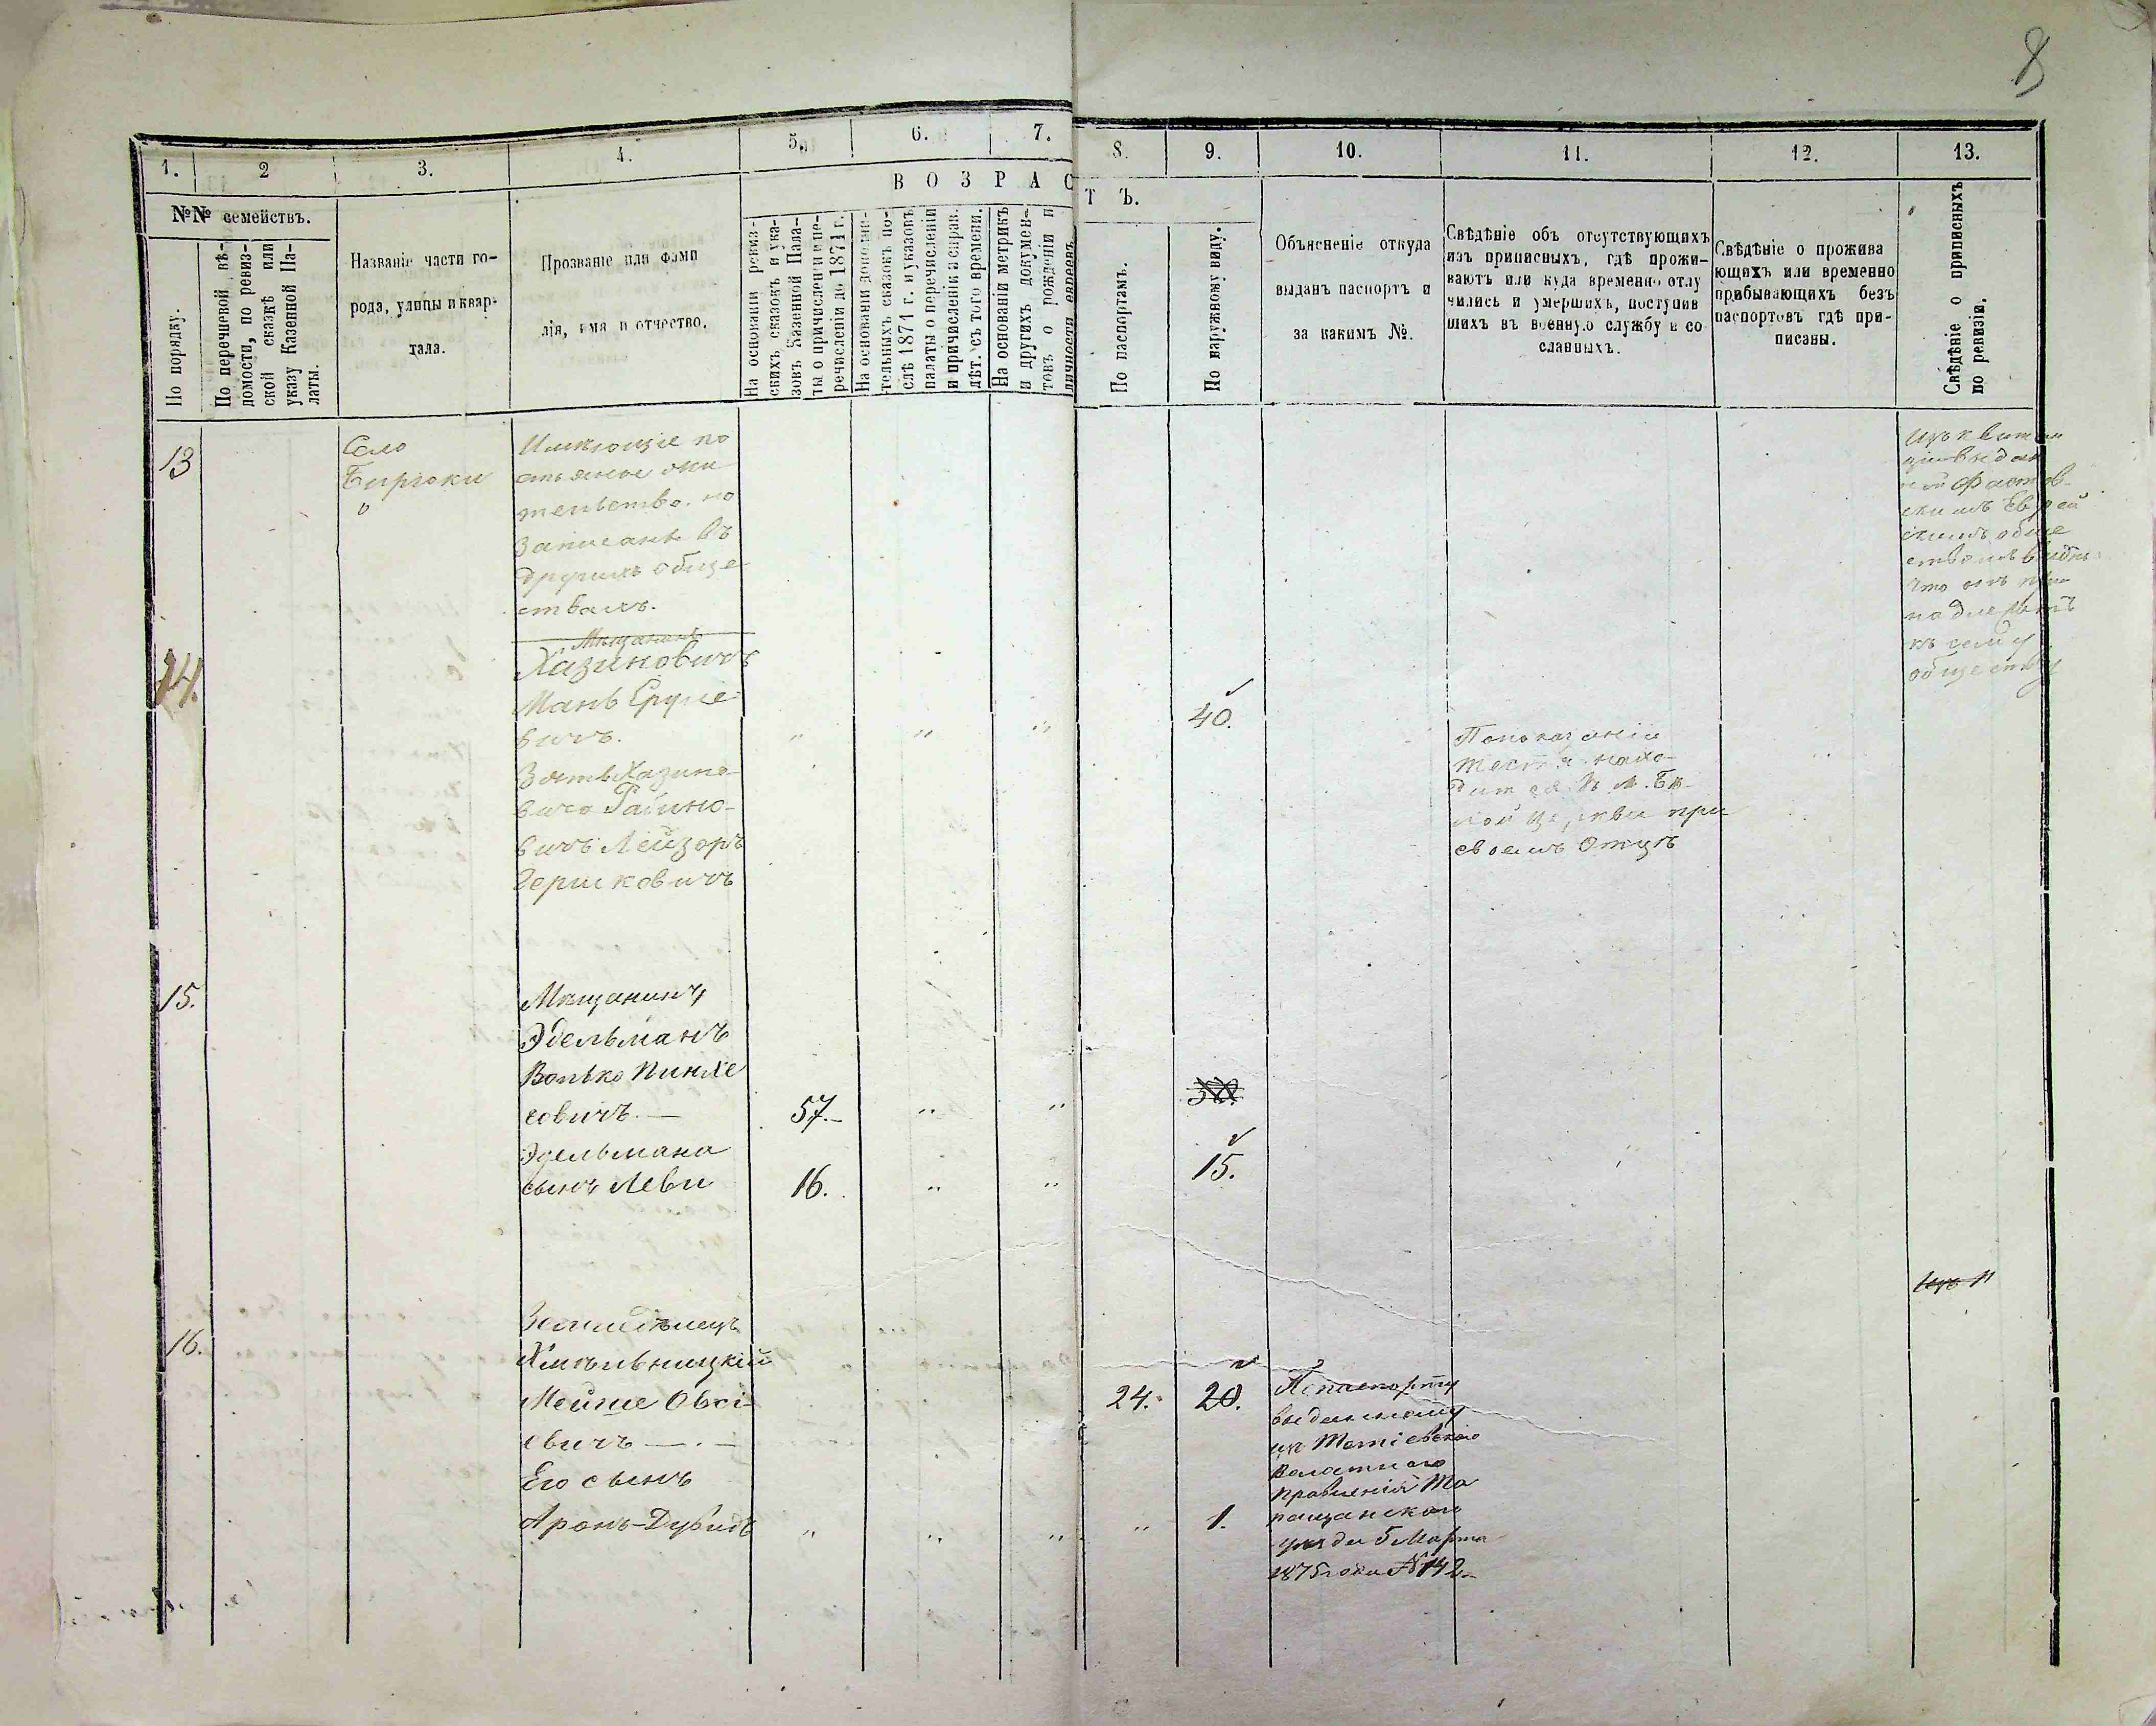 8
1.
2
3.
4.
5.
6.
7.
8.
9.
10.
11.
12.
13.
№№ семействъ.
ВОЗРАСТЪ.
По порядку.
По перечневой вѣ-
домости, по ревиз-
ской сказкѣ или
указу Казенной Па-
латы.
Названіе части го-
рода, улицы и квар-
тала.
Прозваніе или фами
лія, имя и отчество.
На основаніи ревиз-
скихъ сказокъ и ука-
зовъ Казенной Пала-
ты о причисленіи и пе-
речисленіи до 1871 г.
На основаніи дополни-
тельныхъ сказокъ по-
слѣ 1871 г. и указовъ
палаты о перечисленіи
и причисленіи и справ.
лѣт. съ того времени.
На основаніи метрикъ
и другихъ докумен-
товъ о рожденіи и
личности евреевъ
По паспортамъ.
По наружному виду.
Объясненіе откуда
выданъ паспортъ и
за какимъ №.
Свѣдѣніе объ отсутствующихъ
изъ приписныхъ, гдѣ прожи-
ваютъ или куда временно отлу
чились и умершихъ, поступив
шихъ въ военную службу и со
сланныхъ.
Свѣдѣніе о прожива
ющихъ или временно
прибывающихъ безъ
паспортовъ гдѣ при-
писаны.
Свѣдѣніе о приписныхъ
по ревизіи.
13
Село
Бирюки
"
Имѣющіе по
стоянное жи
тельство. но
записаны въ
другихъ обще
ствахъ.
14.
Мѣщанинъ
Хазиновичъ
Мань Сруле
вичъ.
" " "
40.
Зять Хазино
вича Рабино-
вичъ Лейзоръ
Гершковичъ
По показанію
тестя нахо-
дится въ м. Бѣ-
лой Церкви при
своемъ отцѣ
Изъ квитан
ціи выдан
ной Фастов
скимъ Еврей
скимъ обще
ствомъ видно
что онъ при
надлежитъ
къ сему
обществу
15.
Мѣщанинъ
Эдельманъ
Волько Пинхе
совичъ. —
57.-
" "
Эдельмана
сынъ Леви
16.
" "
15.
16.
Хмѣльницкій
Мейше Овсі-
евичъ —.—
24.
20.
Его сынъ
Аронъ-Дувидъ
" " " "
1.
По паспорту
выданному
изъ Тетіевскаго
Волостного
правленія Та
ращанскаго
уезда 5 Марта
1875 года № 142-